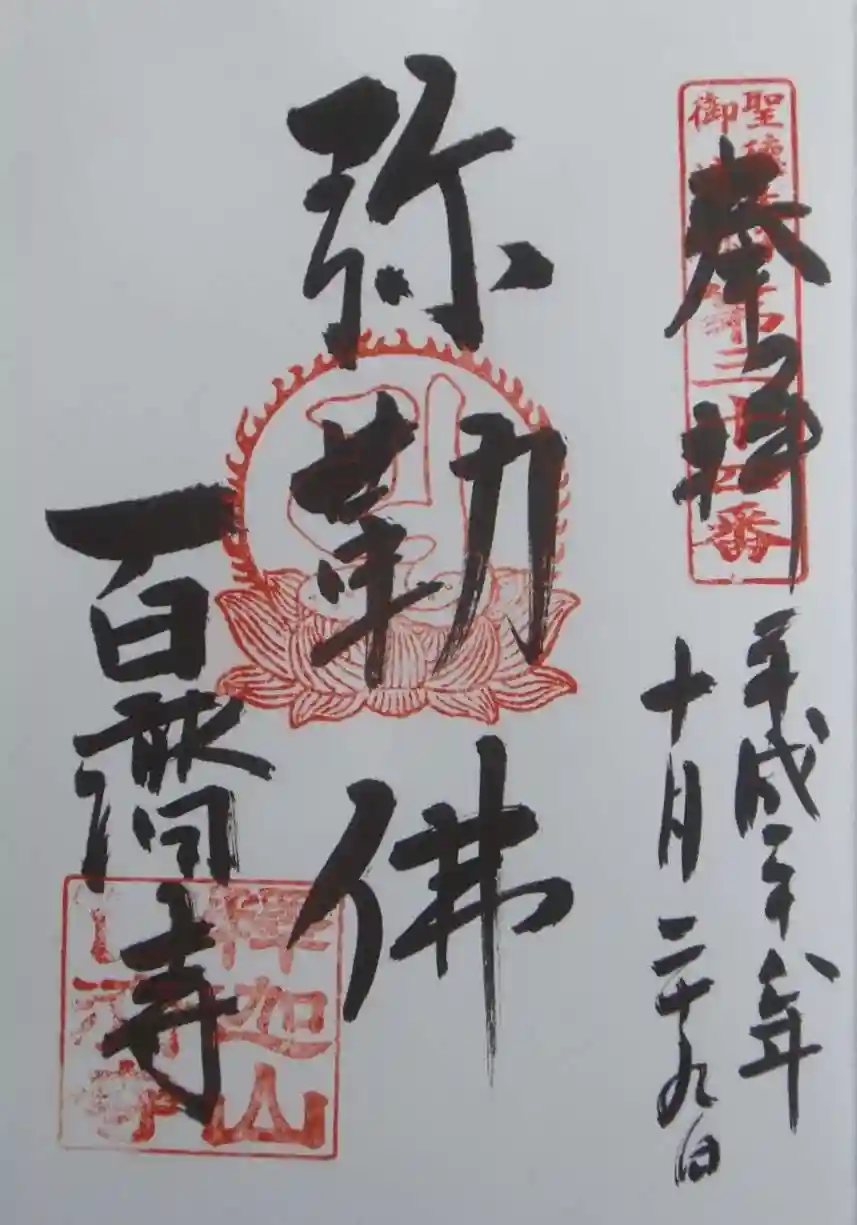 奉拝
聖徳太子
御遺跡第三十四番
平成二十八年
十月二十九日
弥勒佛
百濟寺
釋迦山
百濟寺